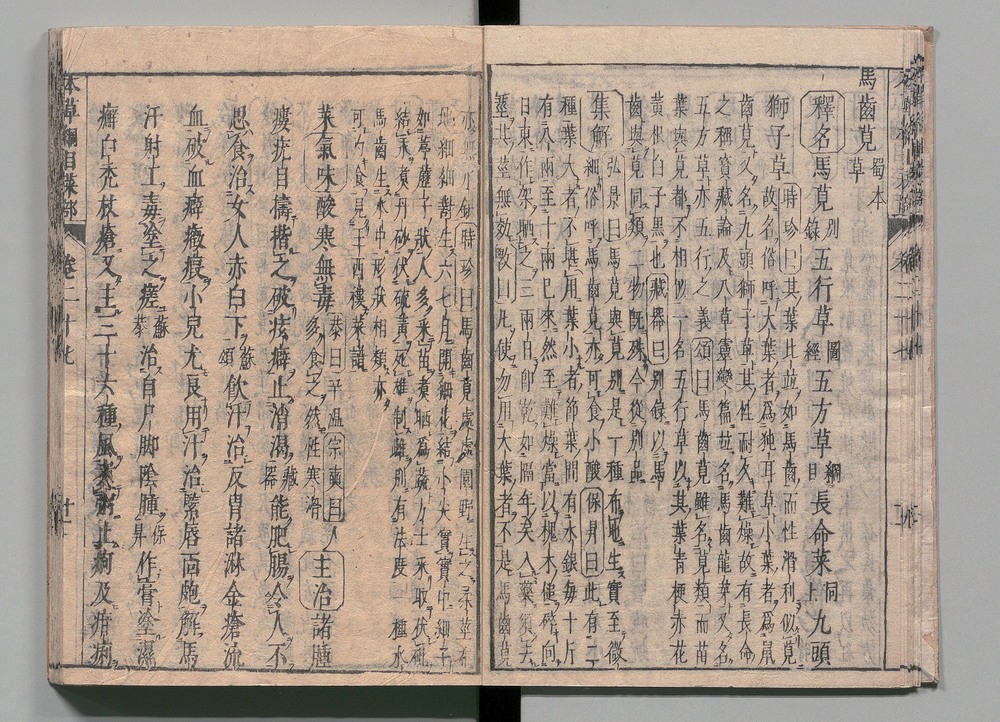 馬齒莧 蜀本草
釋名 馬莧 別錄 五行草 圖經 五方草 綱目 長命菜 同上 九頭
獅子草 時珍曰其葉比並如馬齒而性滑利似莧
故名俗呼大葉者爲㹠耳草小葉者爲鼠
齒莧又名九頭獅子草其性耐久難燥故有長命
之稱寳藏論及八草靈變篇並名馬齒龍芽又名
五方草亦五行之義頌曰馬齒莧雖名莧類而苗
葉與莧都不相似一名五行草以其葉青梗赤花
黄根白子黑也藏器曰別錄以馬
齒與莧同類二物旣殊今從別品
集解 弘景曰馬莧與莧別是一種布地生實至微
細俗呼馬齒莧亦可食小酸保昇曰此有二
種葉大者不堪用葉小者節葉間有水銀每十斤
有八兩至十兩已來然至難燥當以槐木槌碎向
日東作架晒之三兩日即乾如隔年矣入藥須去
莖其莖無效斅曰凡使勿用大葉者不是馬齒莧
亦無水銀時珍曰馬齒莧處處園野生之柔莖布
地細細對生六七月開細花結小尖實實中細子
如葶藶子狀人多采苗煮晒爲蔬方士采取伏砒
結汞煮丹砂伏硫黄死雄制雌別有法度一種水
馬齒生水中形狀相類亦
可㶸食見王西樓菜譜
菜氣味酸寒無毒 恭曰辛温宗奭曰人
多食之然性寒滑 主治諸腫
瘻疣目擣揩之破痃癖止消渴 藏器 能肥腸令人不
思食治女人赤白下 蘇頌 飲汁治反胃諸淋金瘡流
血破血癖癥瘕小兒尤良用汁治緊唇面皰解馬
汗射工毒塗之瘥 蘇恭 治自尸脚陰腫 保昇 作膏塗濕
癬白禿杖瘡又主三十六種風煮粥止痢及疳痢
本草綱目菜部 卷二十七 十